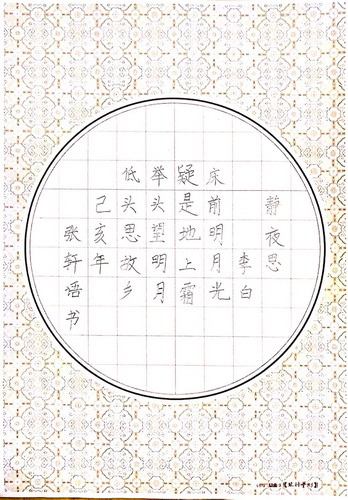 静夜思
李白
床前明月光
疑是地上霜
举头望明月
低头思故乡
己亥年
张轩语书